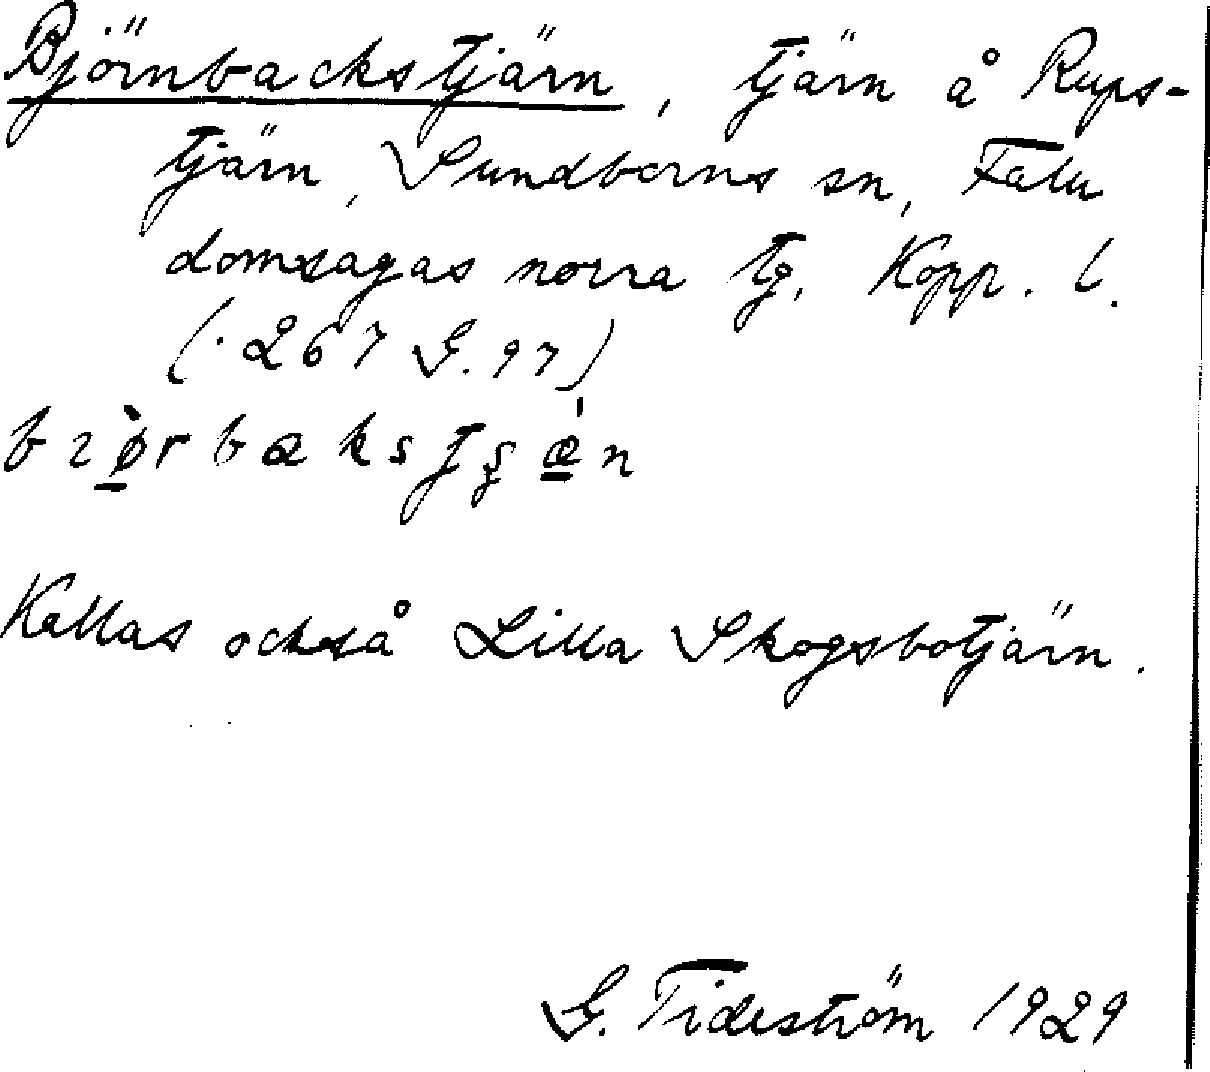 Björnbackstjärn, tjärn å Rups-
tjärn, Sundborns sn, Falu
domsagas norra tg, Kopp. l.
(. 267 G. 97)
Kallas också Lilla Skogsbotjärn.
G. Tideström 1929